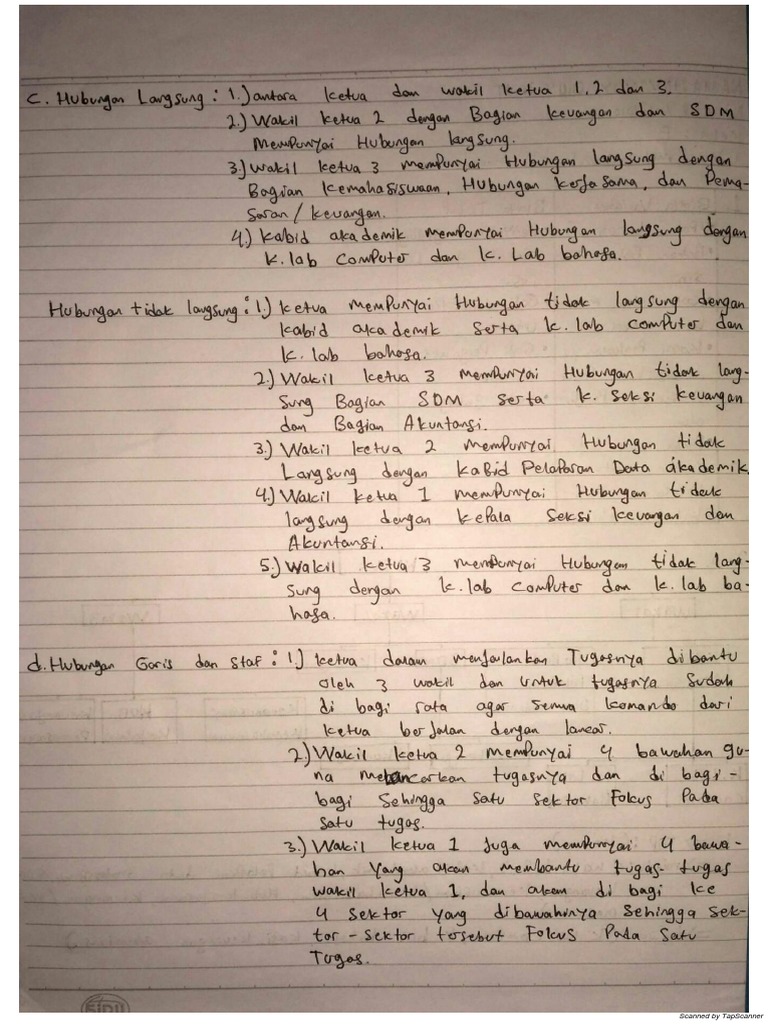 c. Hubungan Langsung : 1.) antara ketua dan wakil ketua 1, 2 dan 3.
2.) Wakil ketua 2 dengan Bagian keuangan dan SDM
mempunyai Hubungan langsung.
3.) wakil ketua 3 mempunyai Hubungan langsung dengan
Bagian kemahasiswaan, Hubungan kerja sama, dan Pema-
saran / keuangan.
4.) kabid akademik mempunyai Hubungan langsung dengan
k. lab Computer dan k. Lab bahasa.
Hubungan tidak langsung : 1.) ketua mempunyai Hubungan tidak langsung dengan
kabid akademik serta k. lab computer dan
k. lab bahasa.
2.) Wakil ketua 3 mempunyai Hubungan tidak lang-
sung Bagian SDM serta k. seksi keuangan
dan Bagian Akuntansi.
3.) Wakil ketua 2 mempunyai Hubungan tidak
Langsung dengan kabid Pelaparan Data akademik.
4.) Wakil ketua 1 mempunyai Hubungan tidak
langsung dengan kepala seksi keuangan dan
Akuntansi.
5.) Wakil ketua 3 mempunyai Hubungan tidak lang-
sung dengan k. lab computer dan k. lab ba-
hasa.
d. Hubungan Garis dan Staf : 1.) ketua dalam menjalankan Tugasnya dibantu
oleh 3 wakil dan untuk tugasnya sudah
di bagi rata agar semua komando dari
ketua berjalan dengan lancar.
2.) Wakil ketua 2 mempunyai 4 bawahan gu-
na melancarkan tugasnya dan di bagi-
bagi sehingga satu sektor Fokus Pada
satu tugas.
3.) Wakil ketua 1 Juga mempunyai 4 bawa-
han yang akan membantu tugas-tugas
wakil ketua 1, dan akan di bagi ke
4 sektor yang dibawahinya sehingga sek-
tor-sektor tersebut Fokus Pada satu
Tugas.
SIDU
Scanned by TapScanner